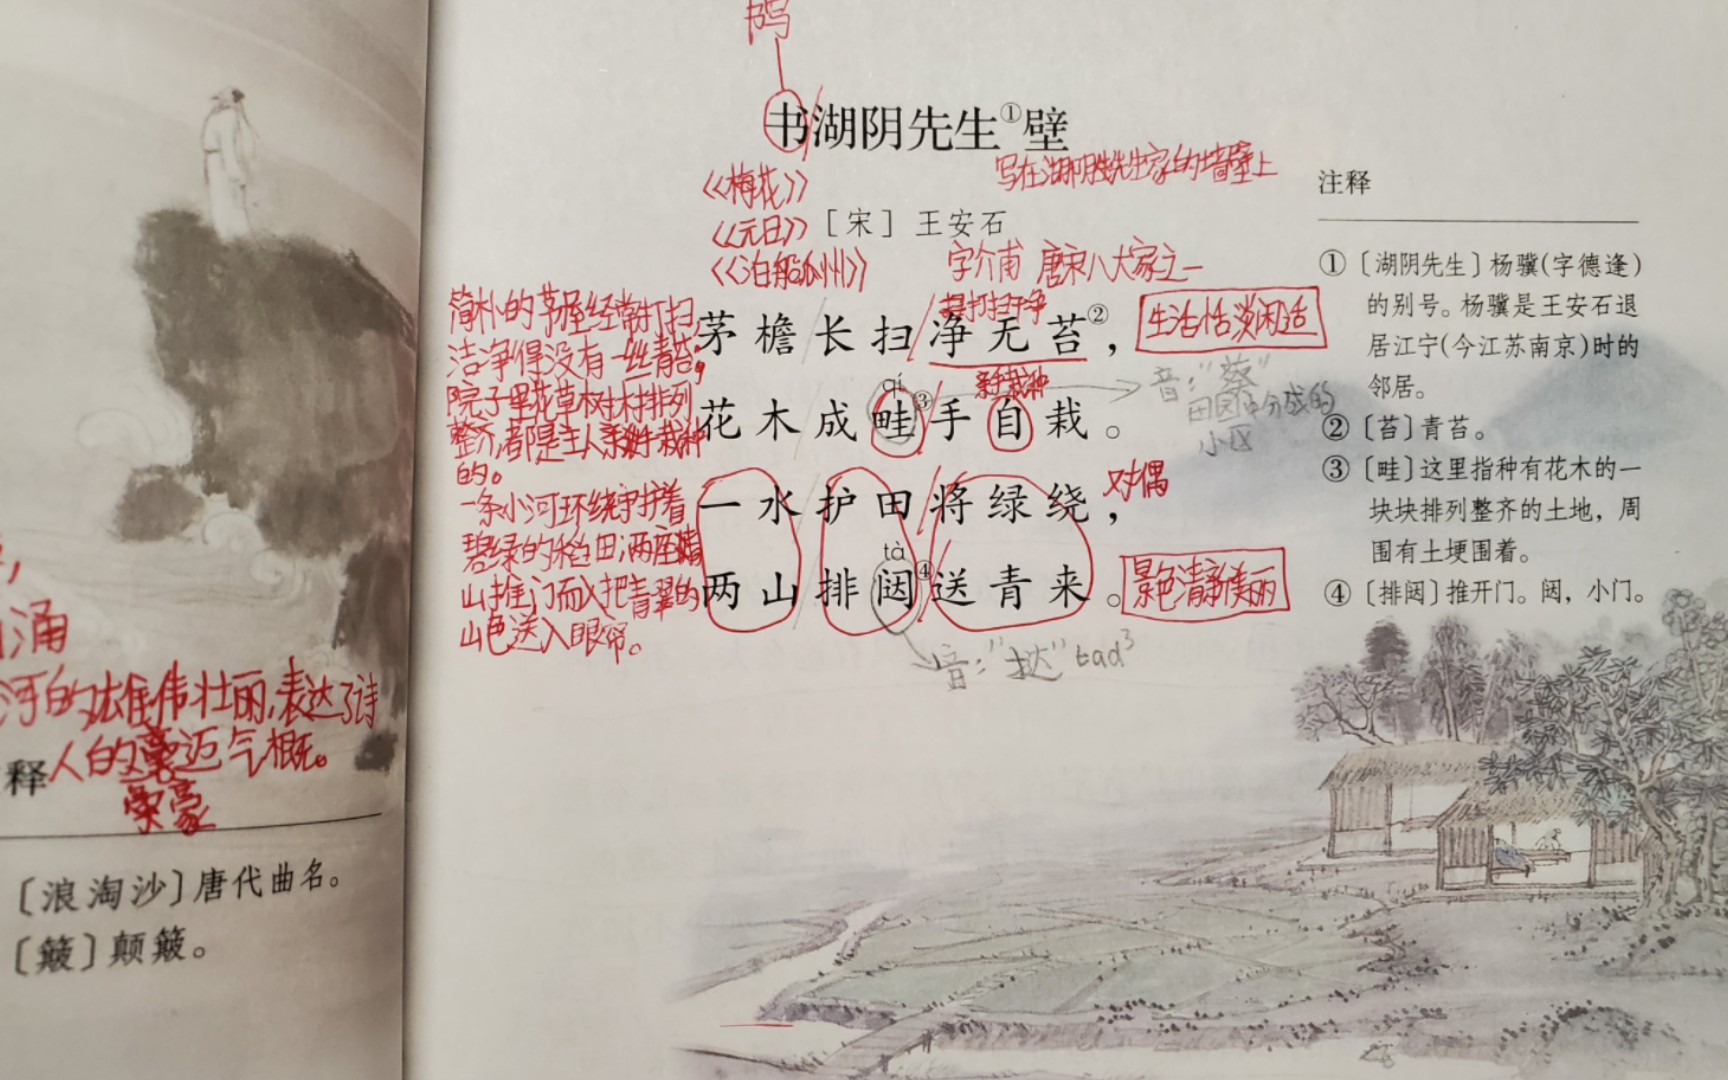 涌
河的雄伟壮丽,表达了诗
人的豪迈气概。
豪
释
[浪淘沙]唐代曲名。
[簸]颠簸。
书湖阴先生①壁
写在湖阴先生家的墙壁上
《梅花》
《元日》
《泊船瓜州》
[宋] 王安石
字介甫 唐宋八大家之一
简朴的茅屋经常打扫,
洁净得没有一丝青苔;
院子里花草树木排列
整齐,都是主人亲手栽种
的。
一条小河环绕守护着
碧绿的稻田,两座
山推门而入把青翠的
山色送入眼帘。
打扫干净
茅檐长扫净无苔②,
生活恬淡闲适
qí
亲手栽种
花木成畦③手自栽。
音:“蔡”
田园中分成的
小区
一水护田将绿绕,
对偶
tà
两山排闼④送青来。
景色清静美丽
音:“挞”
注释
①[湖阴先生]杨骥(字德逢)
的别号。杨骥是王安石退
居江宁(今江苏南京)时的
邻居。
②[苔]青苔。
③[畦]这里指种有花木的一
块块排列整齐的土地,周
围有土埂围着。
④[排闼]推开门。闼,小门。